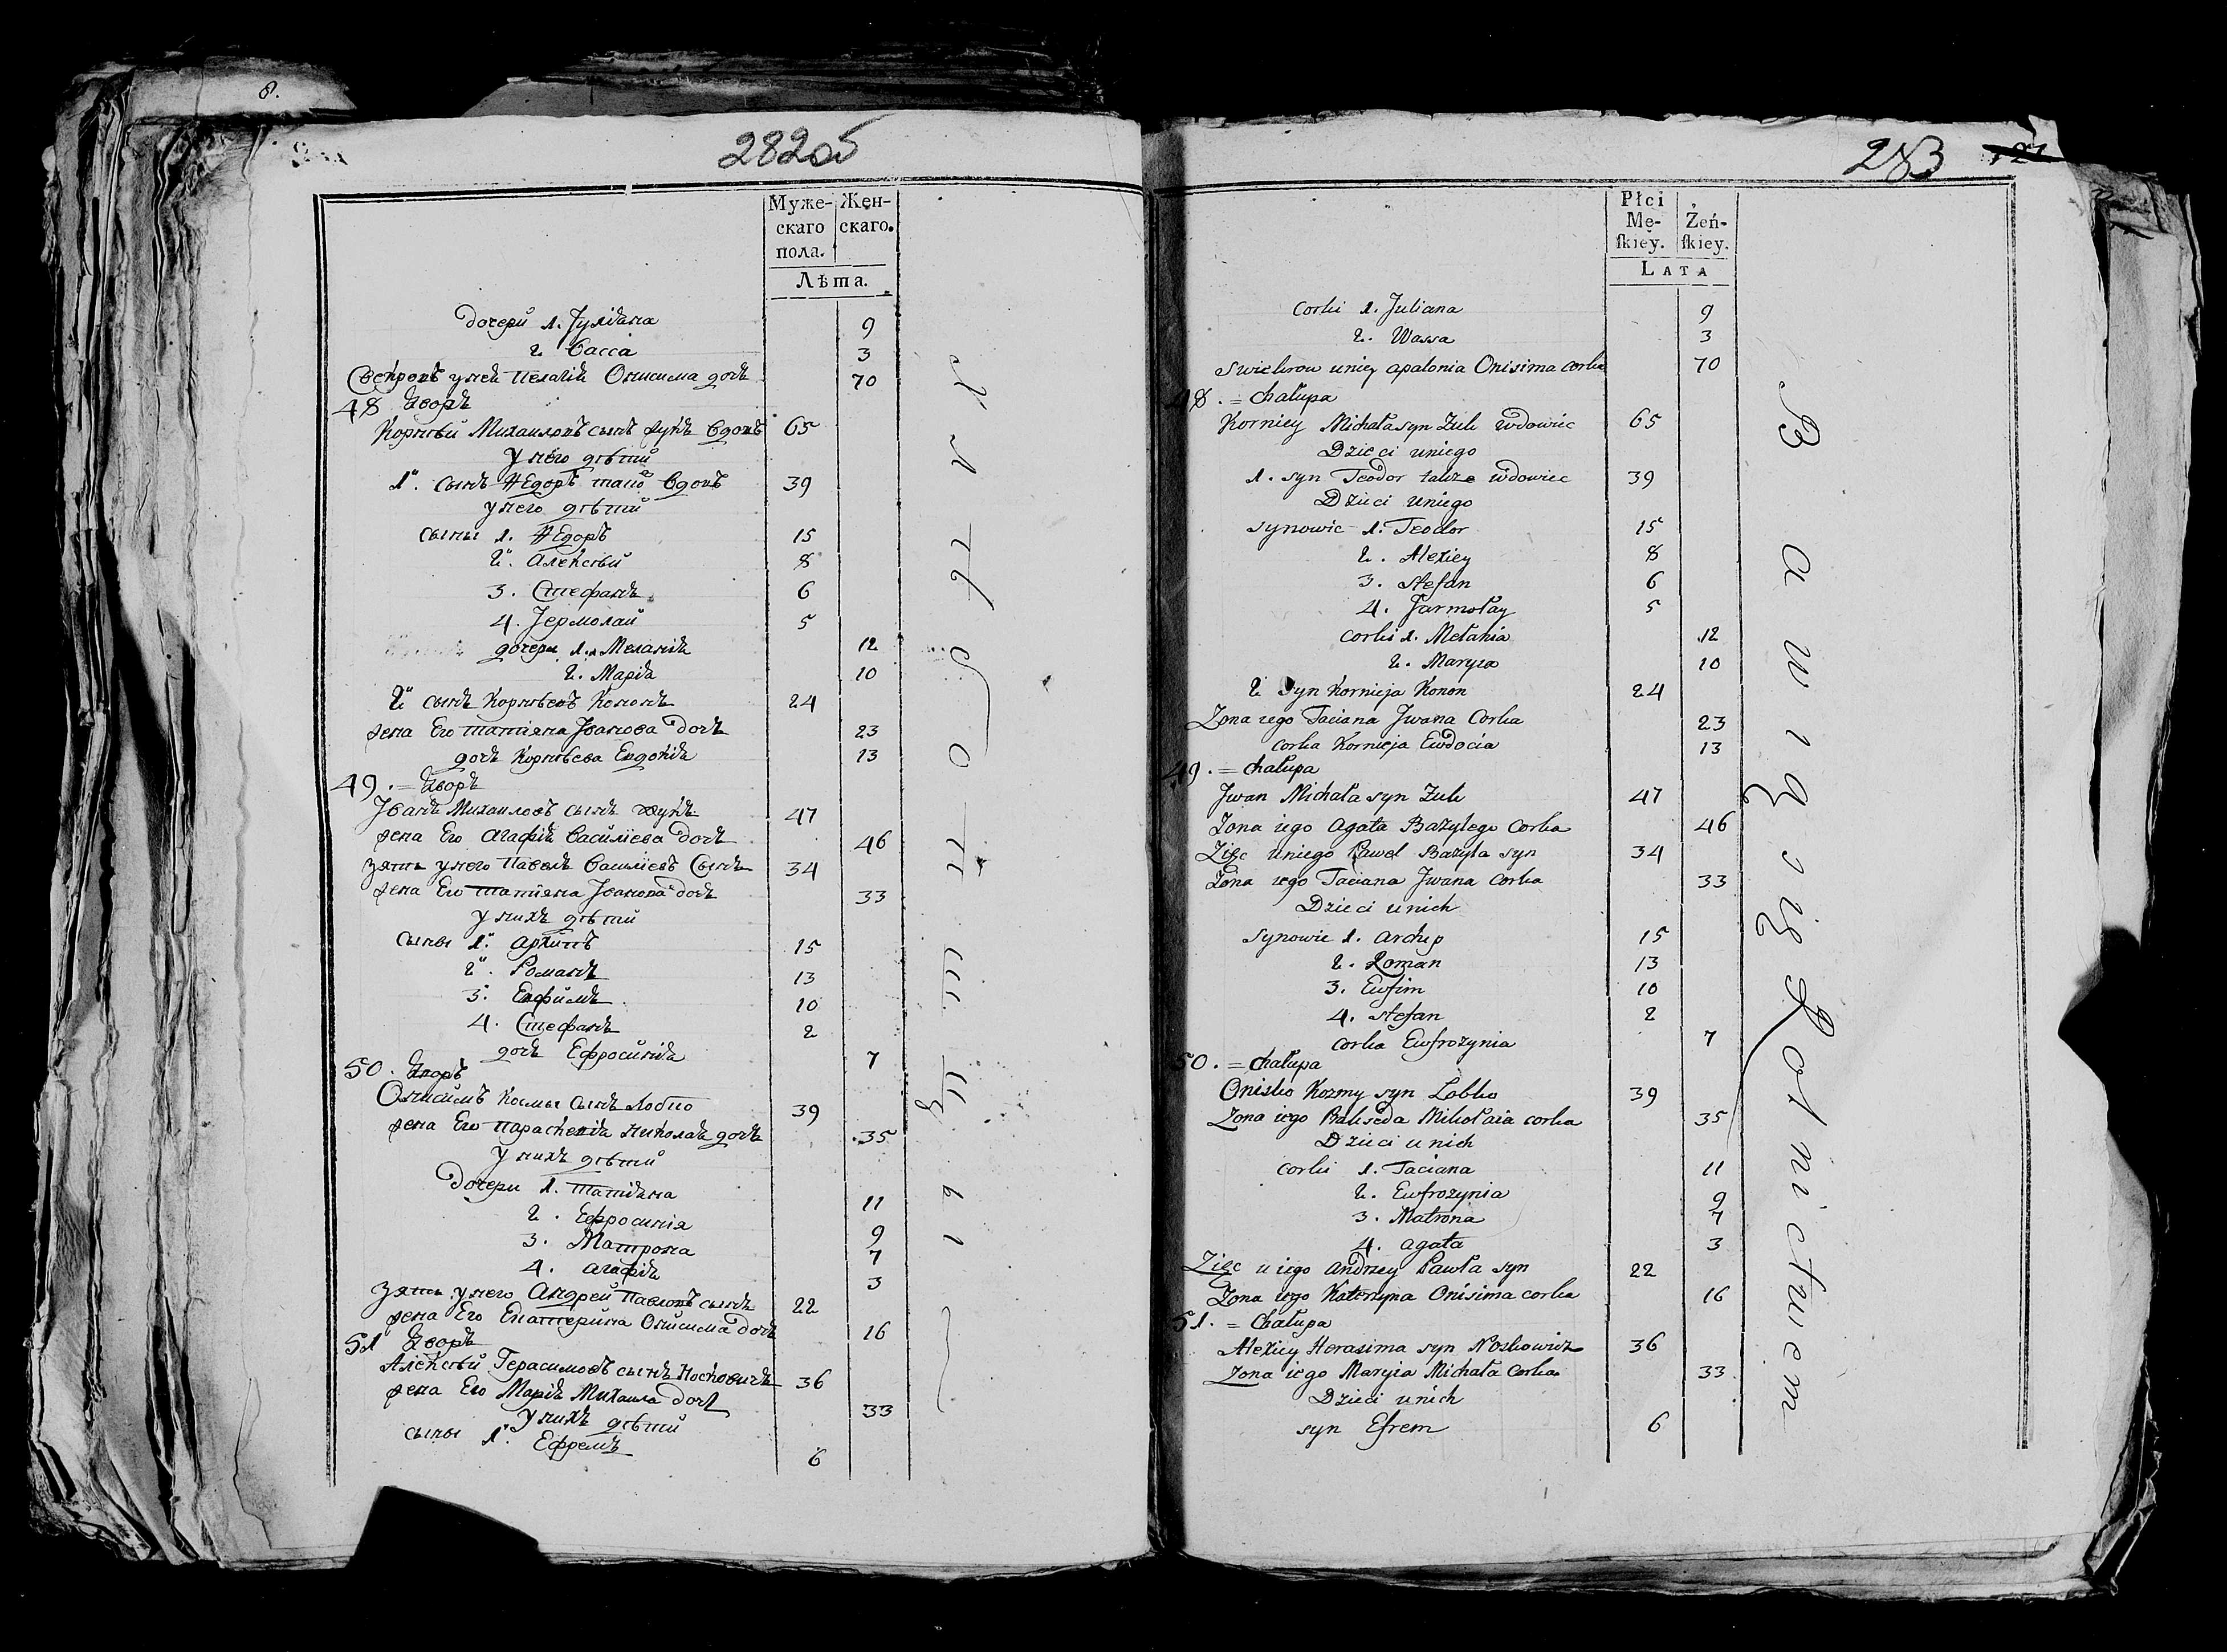 8.
282об
Муже-
скаго
пола.
Жен-
скаго.
Лѣта.
дочери 1. Іуліана 9
2. Васса 3
Свекровь у ней Пелагія Онисима дочь 70
48 Дворъ
Корнѣй Михаиловъ сынъ Жукъ вдовъ 65
у него дѣти
1й. сынъ Ѳедоръ вдовъ 39
у него дѣти
сыны 1. Ѳедоръ 15
2й. Алексѣй 8
3. Стефанъ 6
4. Іермолай 5
дочери 1. Меланія 12
2. Марія 10
2й сынъ Корнѣевъ Кононъ 24
жена Его Татіяна Іванова дочь 23
дочь Корнѣева Евдокія 13
49. = Дворъ
Іванъ Михаиловъ сынъ Жукъ 47
жена Его Агафія Василіева дочь 46
зять у него Павелъ Василіевъ сынъ 34
жена Его Татіяна Іванова дочь 33
у нихъ дѣти
сыны 1й. Архипъ 15
2й. Романъ 13
3. Евфимъ 10
4. Стефанъ 2
дочь Ефросинія 7
50. Дворъ
Онисимъ Космы сынъ Лобко 39
жена Его Параскевія Николая дочь 35
у нихъ дѣти
дочери 1. Татіана 11
2. Ефросинія 9
3. Матрона 7
4. Агафія 3
зять у него Андрей Павловъ сынъ 22
жена Его Екатерина Онисима дочь 16
51 Дворъ
Алексѣй Герасимовъ сынъ Носковичъ 36
жена Его Марія Михаила дочь 33
у нихъ дѣти
сыны 1й. Ефремъ 6
283
Płci
Mę-
skiey.
Żeń-
skiey.
LATA
corki 1. Juliana 9
2. Wassa 3
Swiekrow uniey apalonia Onisima corka 70
48. = Chałupa
Korniey Michała syn Żuk wdowiec 65
Dzieci uniego
1. syn Teodor takze wdowiec 39
Dzieci uniego
synowie 1. Teodor 15
2. Alexiey 8
3. Stefan 6
4. Jarmołay 5
corki 1. Mełania 12
2. Maryia 10
2 syn Kornieja Konon 24
Zona iego Taciana Jwana Corka 23
corka Kornieja Ewdocia 13
49. = Chałupa
Jwan Michała syn Żuk 47
Zona iego Agata Bazylego Corka 46
Zięc uniego Paweł Bazyla syn 34
Zona iego Taciana Jwana Corka 33
Dzieci unich
synowie 1. Archip 15
2. Roman 13
3. Ewfim 10
4. Stefan 2
corka Ewfrozynia 7
50. = Chałupa
Onisko Kozmy syn Lobko 39
Zona iego Mikołaia corka 35
Dzieci unich
corki 1. Taciana 11
2. Ewfrozynia 9
3. Matrona 7
4. agata 3
Zięc u iego Andrzey Pawła syn 22
Zona iego Katerzyna Onisima corka 16
51. = Chałupa
Alexiey Herasima syn Noskowicz 36
Zona iego Maryia Michała Corka 33
Dzieci unich
syn Efrem 6
Bawią się Rolnictwem